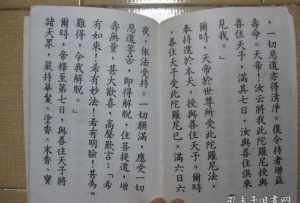 一切惡道亦得清淨。復令持者增益
壽命。天帝!汝去將我此陀羅尼授與
善住天子,滿其七日,汝與善住俱來
見我。」
爾時,天帝於世尊所受此陀羅尼法,
奉持還於本天,授與善住天子。爾時
,善住天子受此陀羅尼已,滿六日六
夜,依法受持。一切願滿,應受一切
惡道等苦,即得解脫,住菩提道,增
壽無量。甚大歡喜,高聲歎言:「希
有如來!希有妙法!希有明驗!甚為
難得,令我解脫。」
爾時,帝釋至第七日,與善住天子將
諸天眾,嚴持華鬘、塗香、末香、寶
孔夫子旧书网